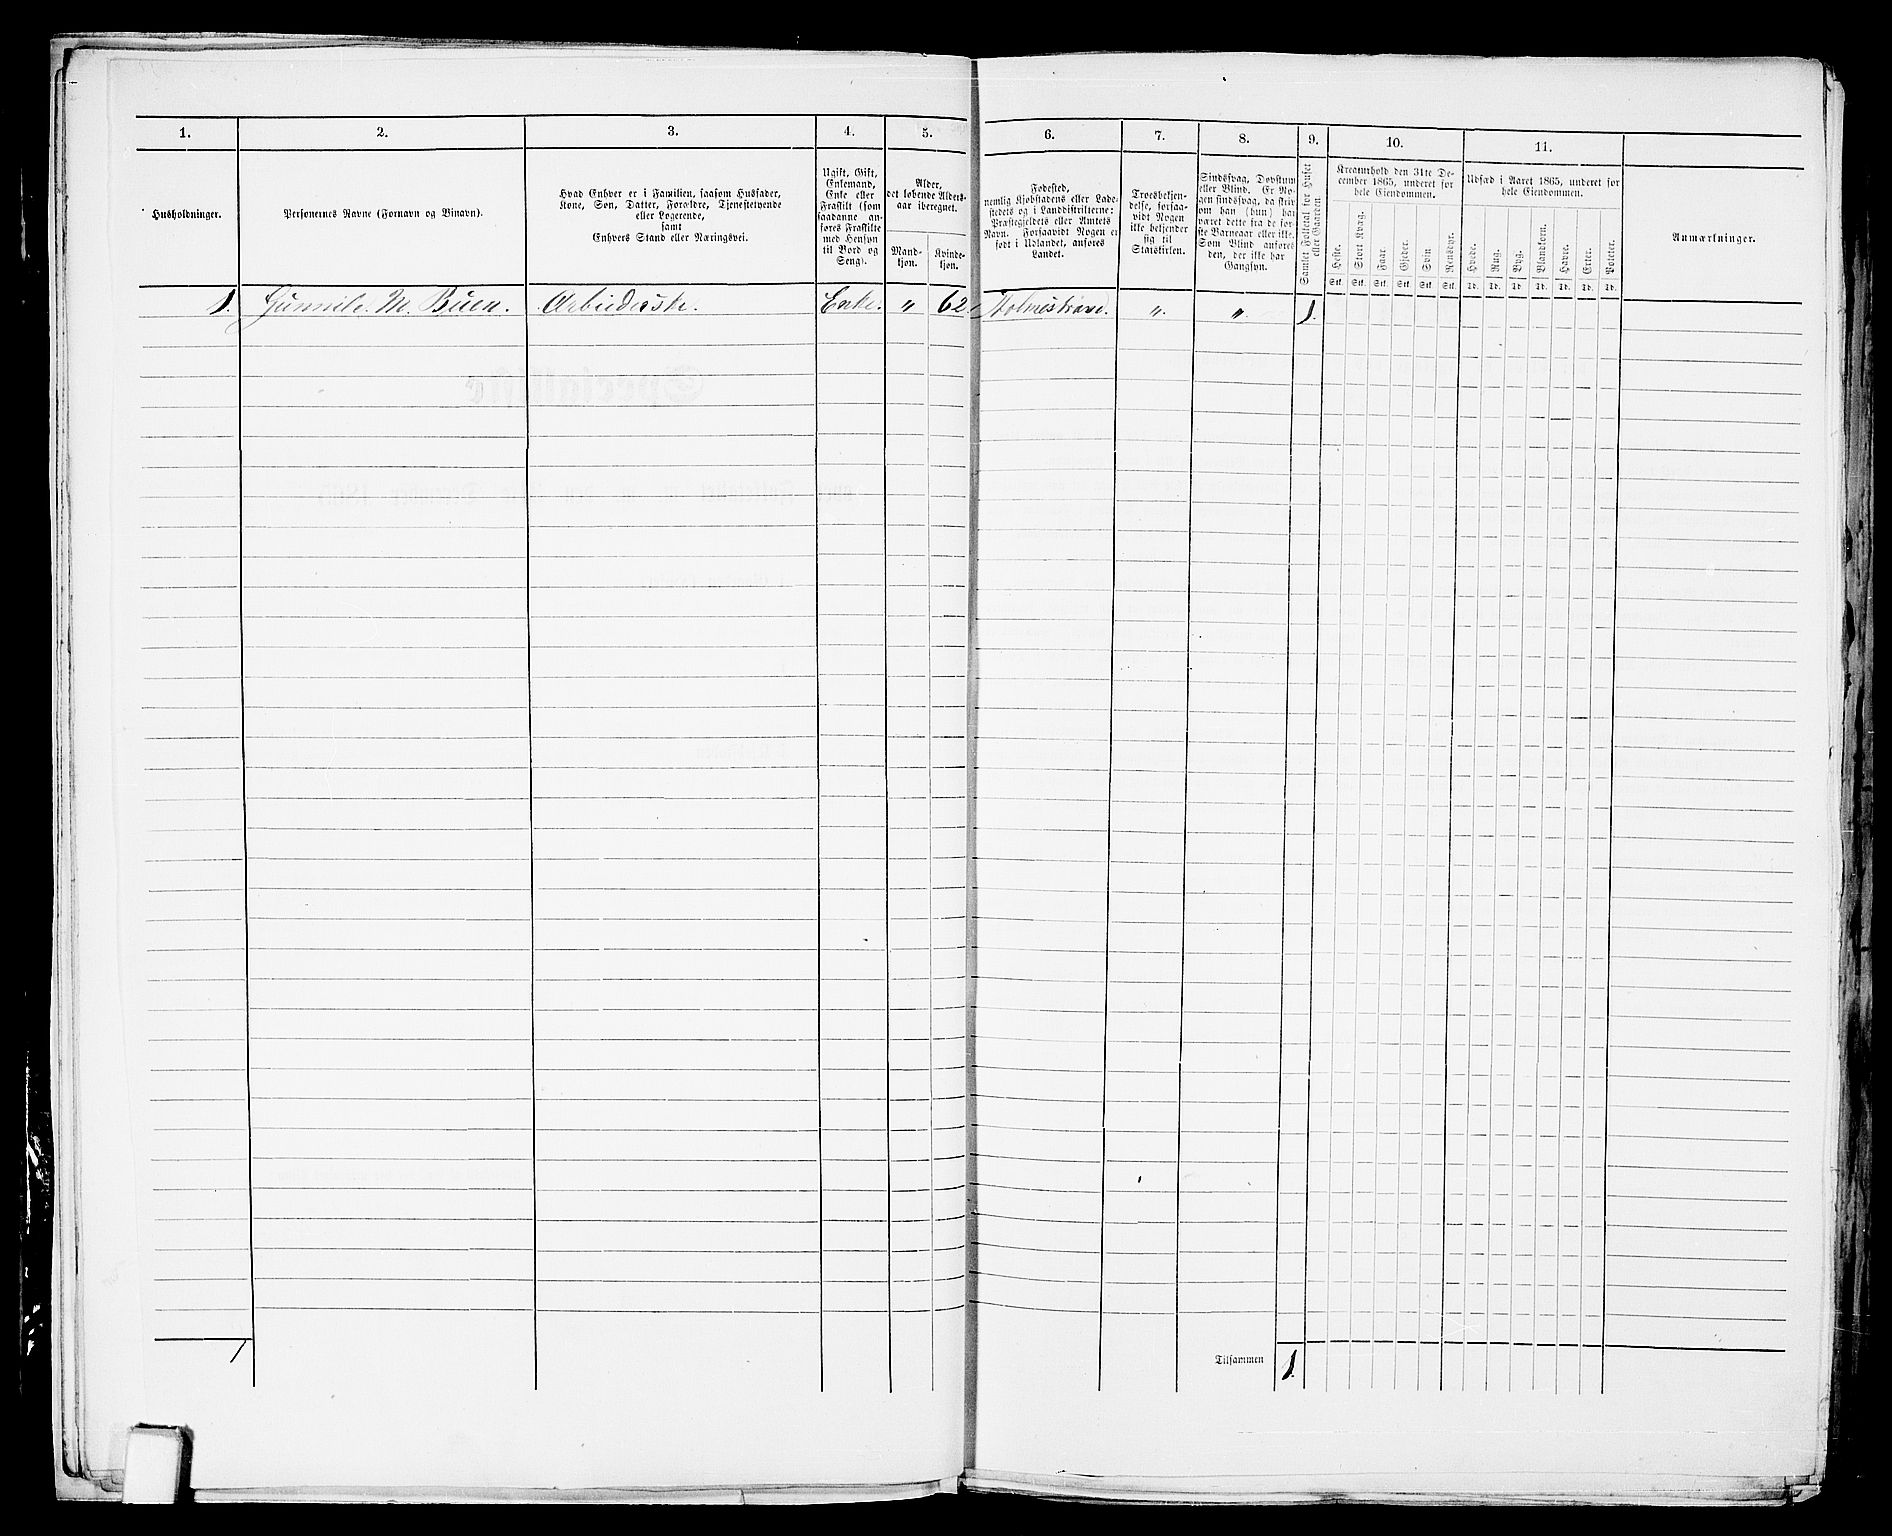 1. 2. 3. 4. 5. 6. 7. 8. 9. 10. 11.
Husholdninger.
Personernes Navne (Fornavn og Binavn).
Hvad Enhver er i Familien, saasom Husfader,
Kone, Søn, Datter, Forældre, Tjenestetyende
eller Logerende,
samt
Enhvers Stand eller Næringsvei.
Ugift, Gift,
Enkemand,
Enke eller
Fraskilt (som
saadanne an-
føres Fraskilte
med Hensyn
til Bord og
Seng).
Alder,
det løbende Alders-
aar iberegnet.
Mand-
kjøn.
Kvinde-
kjøn.
Fødested,
nemlig Kjøbstadens eller Lade-
stedets og i Landdistrikterne:
Præstegjeldets eller Amtets
Navn. Forsaavidt Nogen er
født i Udlandet, anføres
Landet.
Troesbekjen-
delse, forsaa-
vidt Nogen
ikke bekjender
sig til
Statskirken.
Sindssvag, Døvstum
eller Blind. Er No-
gen sindssvag, da skriv
om han (hun) har
været dette fra de før-
ste Barneaar eller ikke.
Som Blind anføres
den, der ikke har
Gangsyn.
Samlet Folketal for Huset
eller Gaarden.
Kreaturhold den 31te De-
cember 1865, underet for
hele Eiendommen.
Heste.
Stort Kvæg.
Faar.
Gjeder.
Svin.
Rensdyr.
Stk. Stk. Stk. Stk. Stk. Stk.
Udsæd i Aaret 1865, underet for
hele Eiendommen.
Hvede.
Rug.
Byg.
Blandkorn.
Havre.
Erter.
Poteter.
Td. Td. Td. Td. Td. Td. Td.
Anmærkninger.
1. Gunnile. M. Buen. Arbeiderske. Enke. " 62. Holmestrand. ". ". 1.
1
Tilsammen 1.